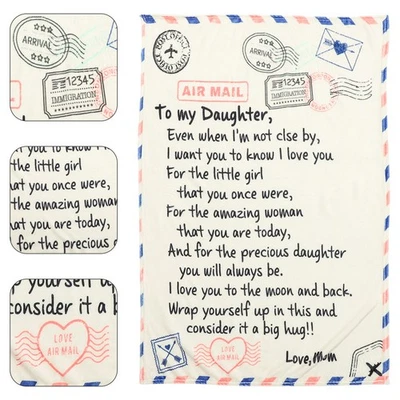 ARRIVAL
12345
IMMIGRATION
you to know I lo
the little girl
hat you once were,
the amazing woman
hat you are today,
for the precious d
p yourself up
consider it a b
LOVE
AIR MAIL
POST OFFICE
POST OFFICE
ARRIVAL
12345
IMMIGRATION
AIR MAIL
To my Daughter,
Even when I'm not clse by,
I want you to know I love you
For the little girl
that you once were,
For the amazing woman
that you are today,
And for the precious daughter
you will always be.
I love you to the moon and back.
Wrap yourself up in this and
consider it a big hug!!
Love, Mum
LOVE
AIR MAIL